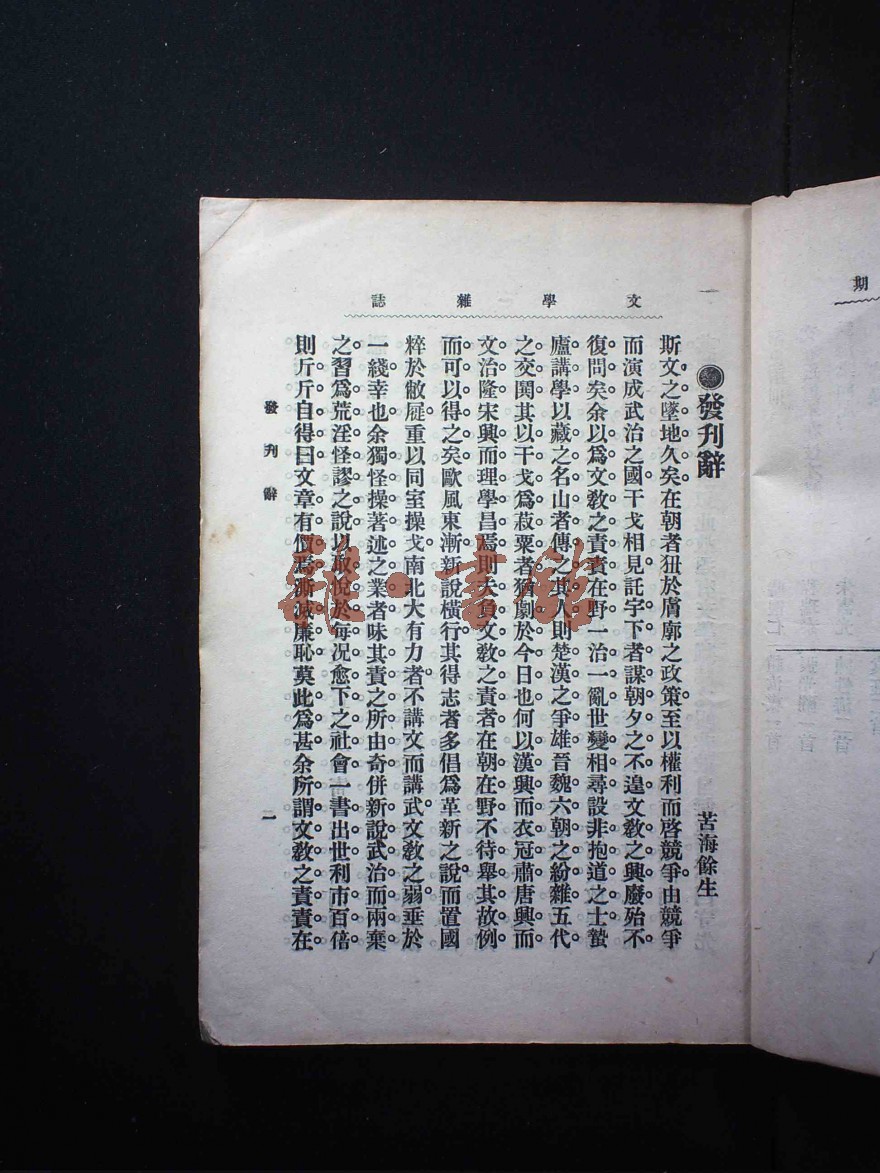 文學雜誌
一
發刊辭
苦海餘生
斯文之墜地久矣在朝者狃於膚廓之政策至以權利而啓競爭由競爭
而演成武治之國干戈相見託宇下者謀朝夕之不遑文敎之興廢殆不
復問矣余以爲文敎之責責在野一治一亂世變相尋設非抱道之士蟄
廬講學以藏之名山者傳之其人則楚漢之爭雄晉魏六朝之紛雜五代
之交鬨其以干戈爲菽粟者猶劇於今日也何以漢興而衣冠肅唐興而
文治隆宋興而理學昌焉則夫負文敎之責者在朝在野不待舉其故例
而可以得之矣歐風東漸新說橫行其得志者多倡爲革新之說而置國
粹於敝屣重以同室操戈南北大有力者不講文而講武文敎之弱垂於
一綫幸也余獨怪操著述之業者昧其責之所由奇併新說武治而兩棄
之習爲荒淫怪謬之說以取悅於每况愈下之社會一書出世利市百倍
則斤斤自得曰文章有價焉澌滅廉恥莫此爲甚余所謂文敎之責責在
發刊辭
二
期
雜·書館